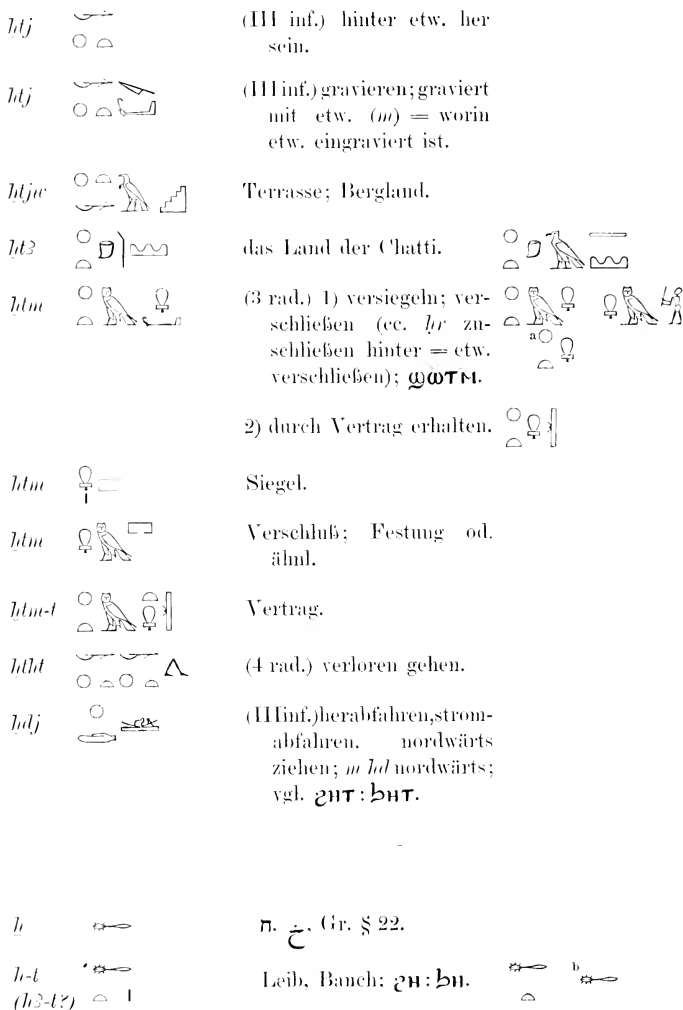 ḫtj (III inf.) hinter etw. her
sein.
ḫtj (III inf.) gravieren; graviert
mit etw. (m) = worin
etw. eingraviert ist.
ḫtjw Terrasse; Bergland.
ḫt3 das Land der Chatti.
ḫtm (3 rad.) 1) versiegeln; ver-
schließen (cc. ḥr zu-
schließen hinter = etw.
verschließen); ϣωτⲙ.
2) durch Vertrag erhalten.
ḫtm Siegel.
ḫtm Verschluß; Festung od.
ähnl.
ḫtm-t Vertrag.
ḫtḫt (4 rad.) verloren gehen.
ḫdj (III inf.) herabfahren, strom-
abfahren. nordwärts
ziehen; m ḫd nordwärts;
vgl. ϩⲏⲧ : ϧⲏⲧ.
ẖ ח. خ. Gr. § 22.
ẖ-t Leib, Bauch; ϩⲏ : ϧⲏ.
(ẖ3-t?)